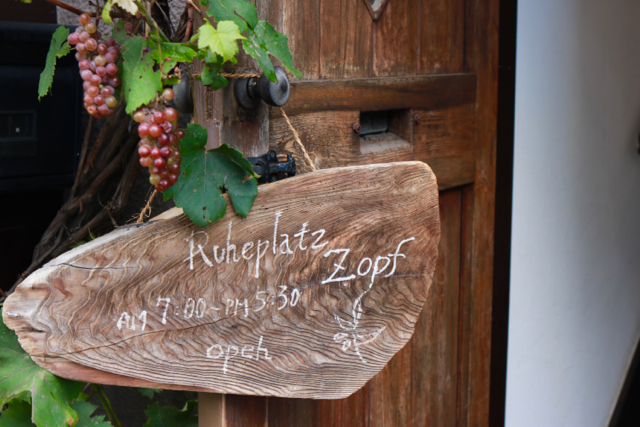 Ruheplatz
Zopf
AM 7:00~PM 5:30
open